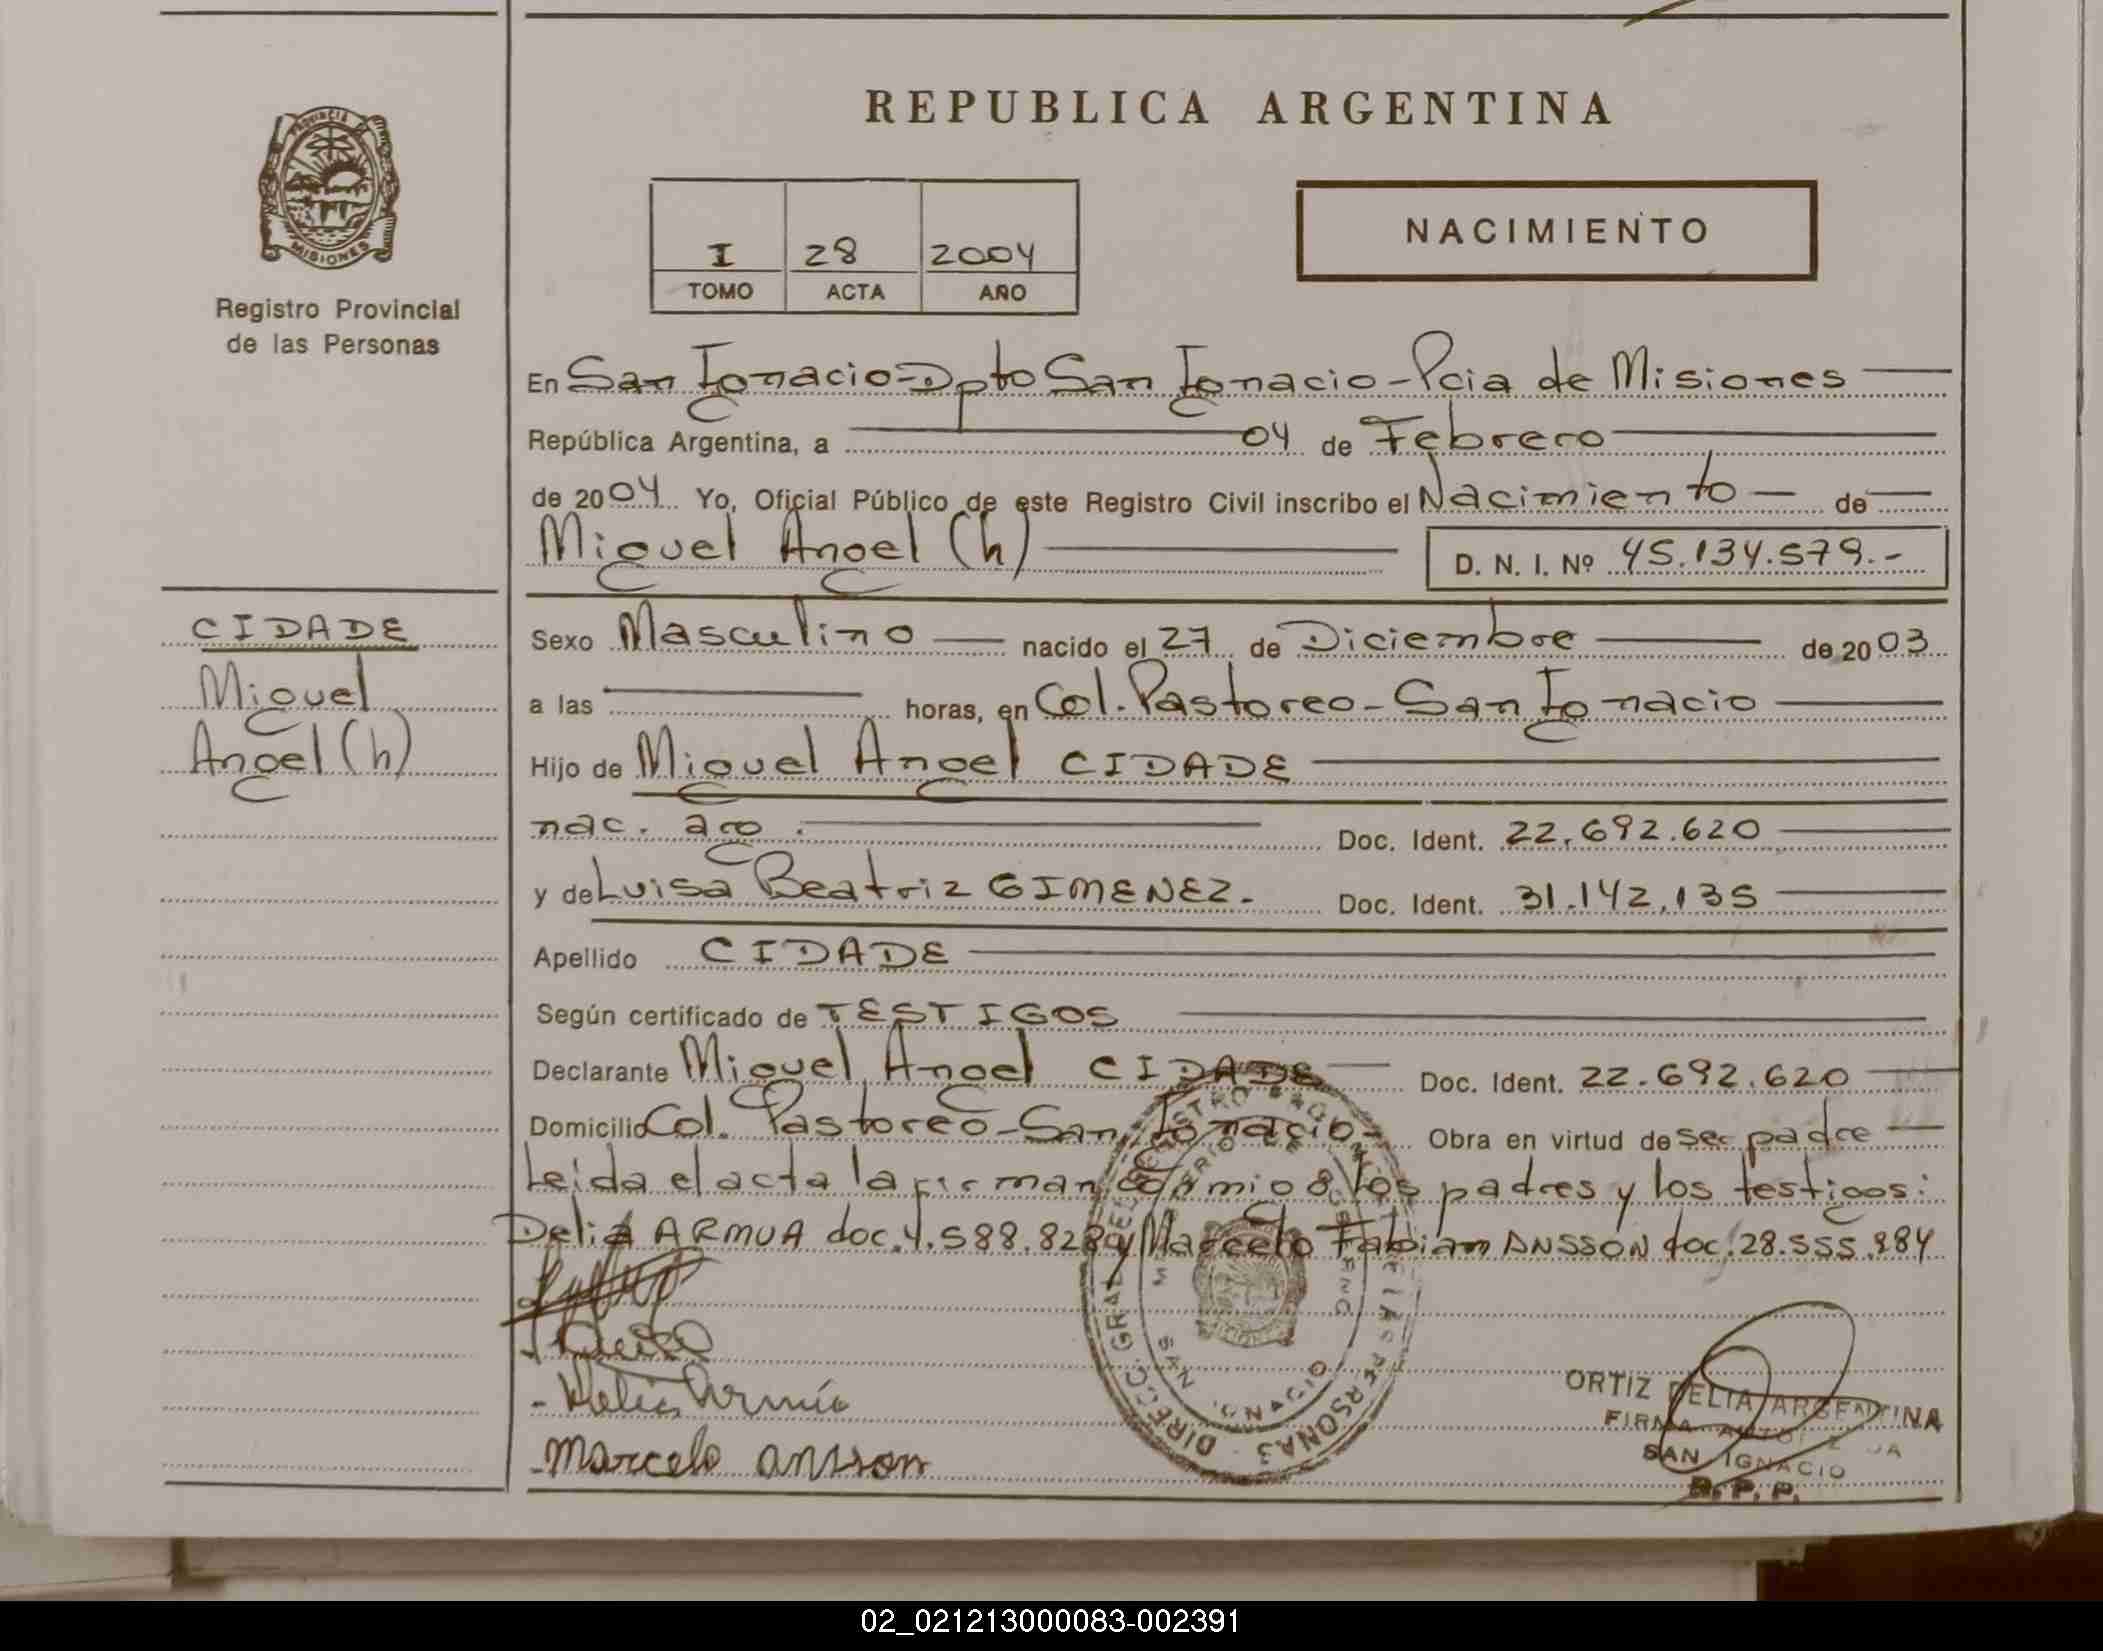 REPUBLICA ARGENTINA
PROVINCIA
MISIONES
Registro Provincial
de las Personas
I 28 2004
TOMO ACTA AÑO
NACIMIENTO
En San Ignacio-Dpto San Ignacio-Pcia de Misiones
República Argentina, a 04 de Febrero
de 2004 Yo, Oficial Público de este Registro Civil inscribo el Nacimiento de
Miguel Angel (h)
D. N. I. Nº 45.134.579.-
CIDADE
Miguel
Angel (h)
Sexo Masculino nacido el 27 de Diciembre de 2003
a las horas, en Col. Pastoreo-San Ignacio
Hijo de Miguel Angel CIDADE
nac. arg. Doc. Ident. 22.692.620
y de Luisa Beatriz GIMENEZ.- Doc. Ident. 31.142.135
Apellido CIDADE
Según certificado de TESTIGOS
Declarante Miguel Angel CIDADE Doc. Ident. 22.692.620
Domicilio Col. Pastoreo-San Ignacio- Obra en virtud de ser padre
Leida el acta la firman los padres y los testigos:
Delia ARMUA doc. y Marcelo Fabian ANSSON doc. 28.555.984
-Delia Armúa
-Marcelo Ansson
ORTIZ DELIA ARGENTINA
FIRMA AUTORIZADA
SAN IGNACIO
R. P. P.
02_021213000083-002391